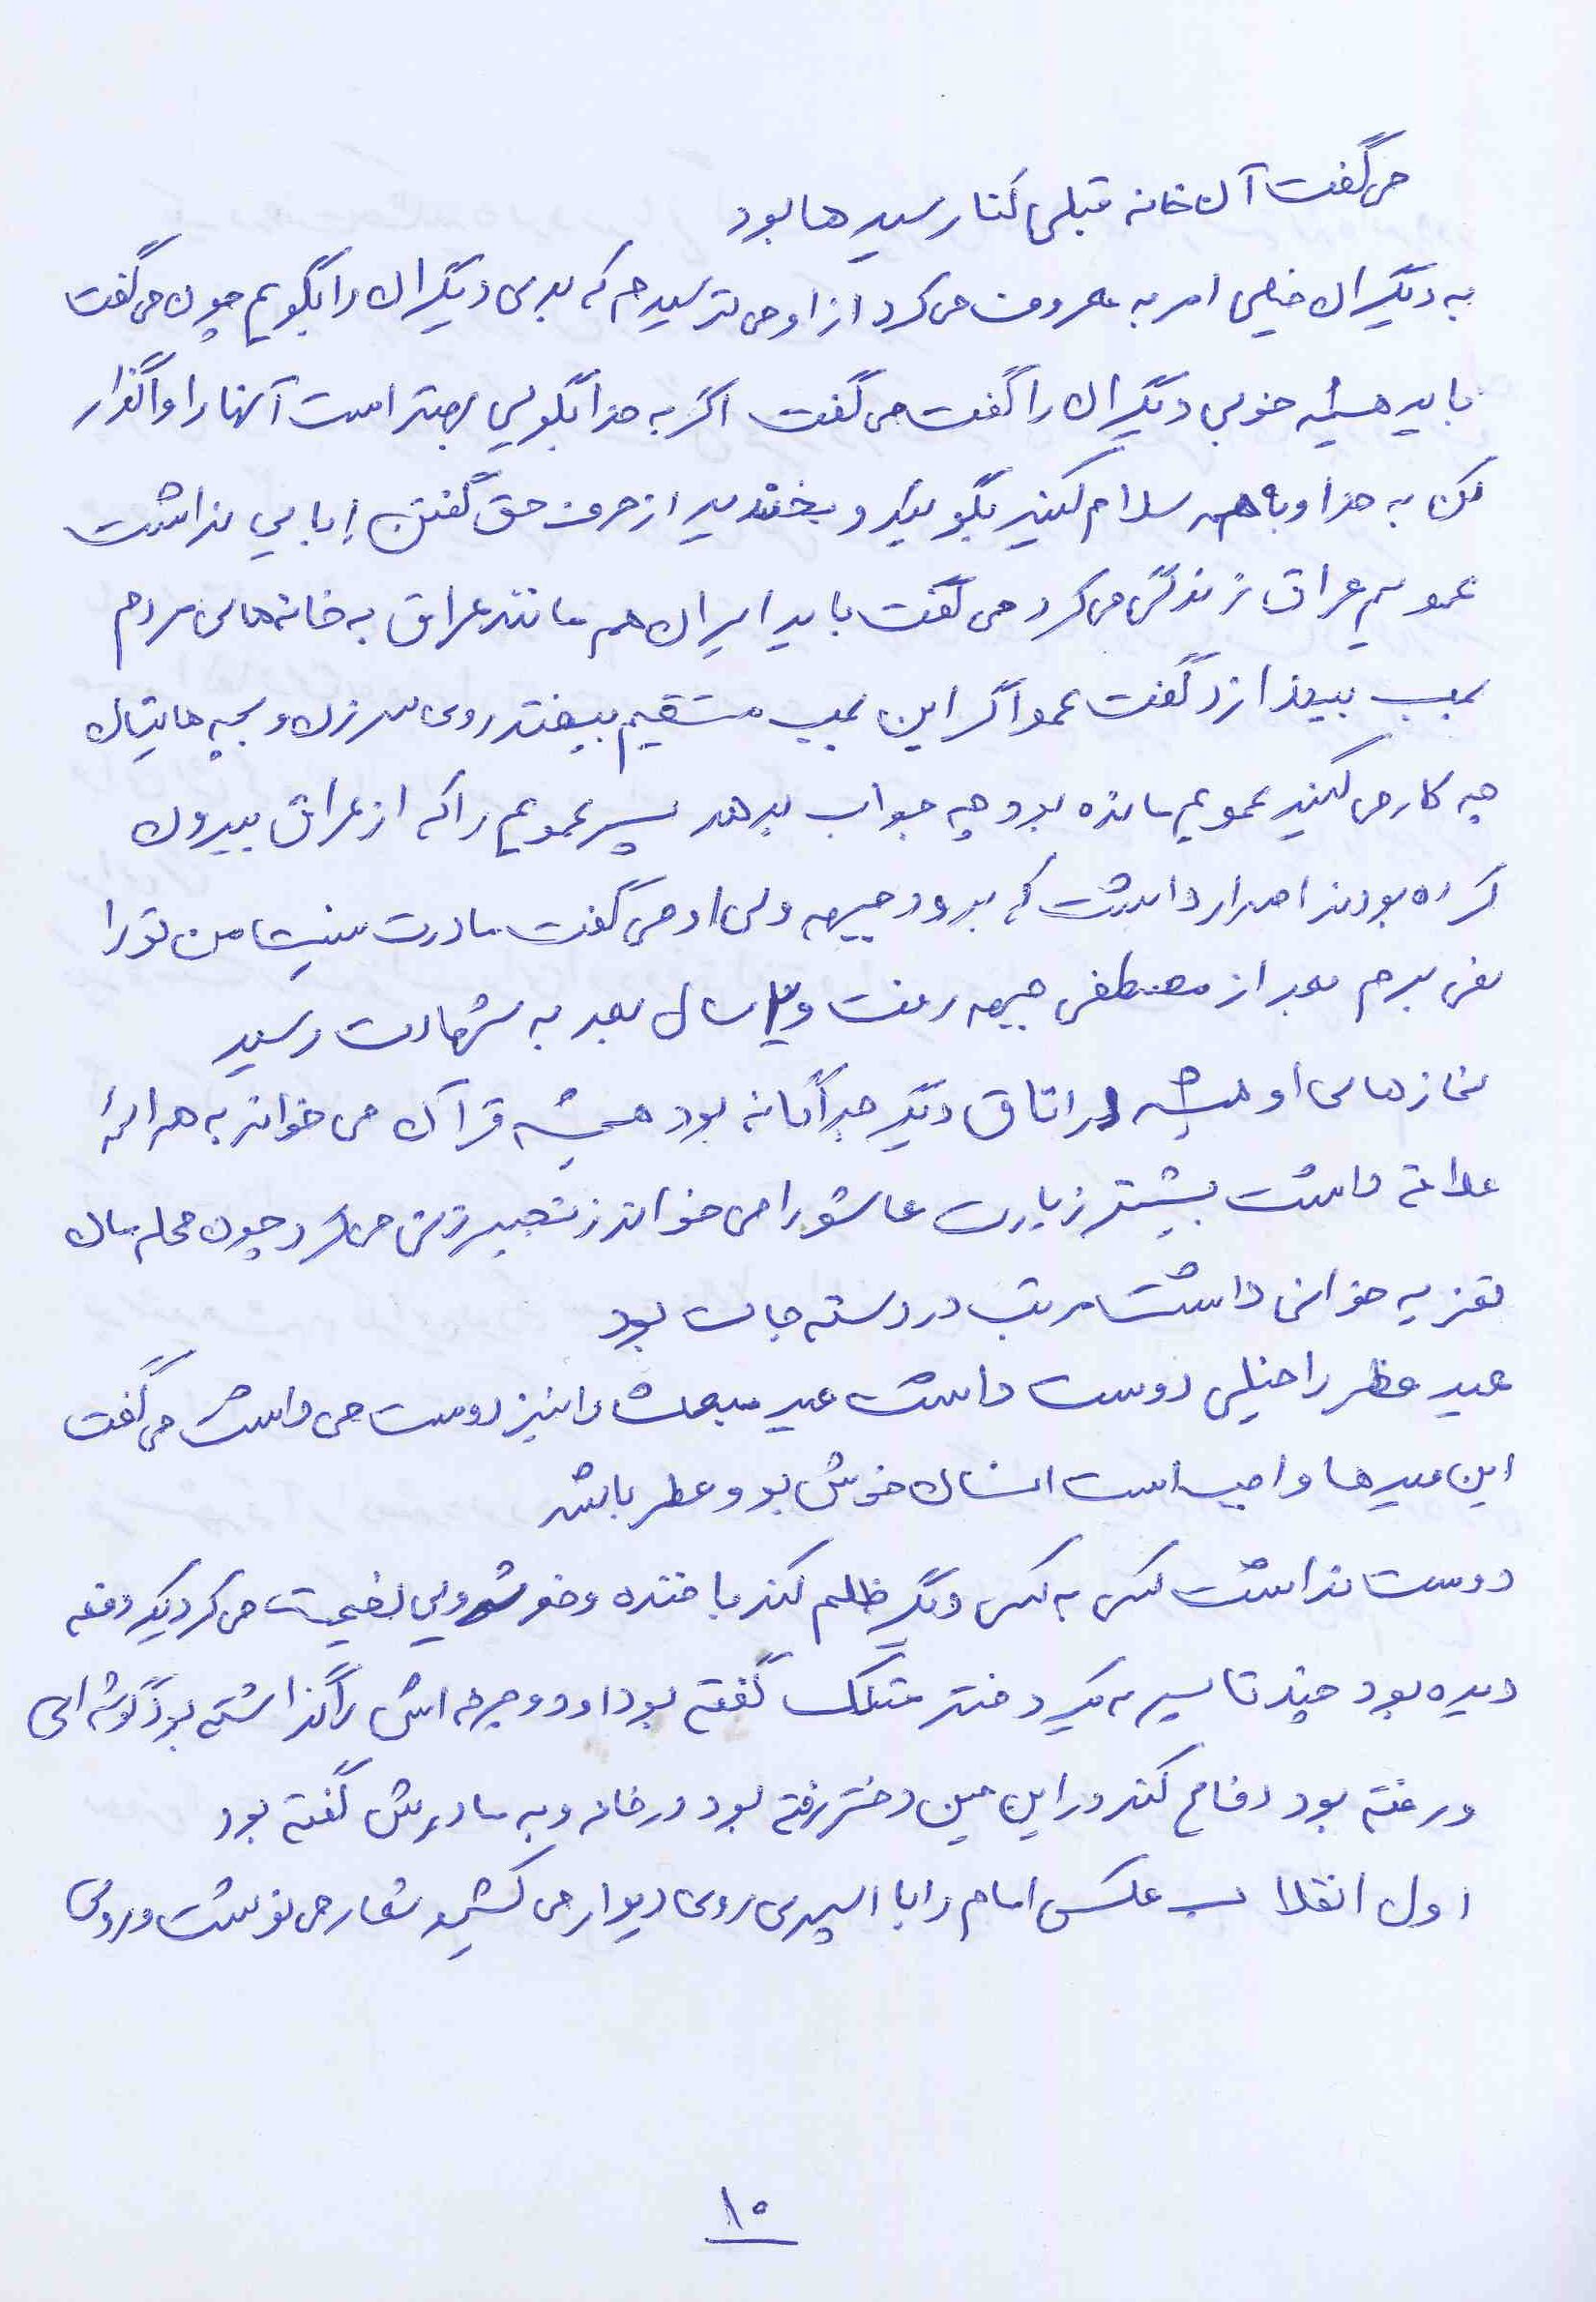 می گفت آن خانه قبلی کنار سید ها بود
به دیگران خیلی امر به معروف می کرد از او می ترسیدم که بدی دیگران را بگویم چون می گفت
باید همیشه خوبی دیگران را گفت می گفت اگر به خدا بگویی بهتر است آنها را واگذار
کن به خدا و با همه سلام کنید بگویید و بخندید از حرف حق گفتن إبایی نداشت
عمویم عراق زندگی می کرد می گفت باید ایران هم مانند عراق به خانه های مردم
بمب بیندازد گفت عمو اگر این بمب مستقیم بیفتد روی سر زن و بچه هایتان
چه کار می کنید عمویم مانده بود چه جواب بدهد پسر عمویم را که از عراق بیرون
کرده بودند اصرار داشت که برود جبهه ولی او می گفت مادرت نیست من تو را
نمی برم بعد از مصطفی جبهه رفت و ۳ سال بعد به شهادت رسید
نمازهای او همیشه در اتاق دیگر جداگانه بود همیشه قرآن می خواند به هر ائمه
علاقه داشت بیشتر زیارت عاشورا می خواند زنجیر زنی می کرد چون محله مان
تعزیه خوانی داشت مرتب در دسته جات بود
عید فطر را خیلی دوست داشت عید مبعث را نیز دوست می داشت می گفت
این عیدها واجب است انسان خوش بو و عطر باشد
دوست نداشت کسی به کسی دیگر ظلم کند با خنده و خوشرویی نصیحت می کرد یک دفعه
دیده بود چند تا پسر به یک دختر متلک گفته بود او دوچرخه اش را گذاشته بود گوشه ای
و رفته بود دفاع کند در این حین دختر رفته بود در خانه و به مادرش گفته بود
اول انقلاب عکس امام را با اسپری روی دیوار می کشید شعار می نوشت و روی
۱۰